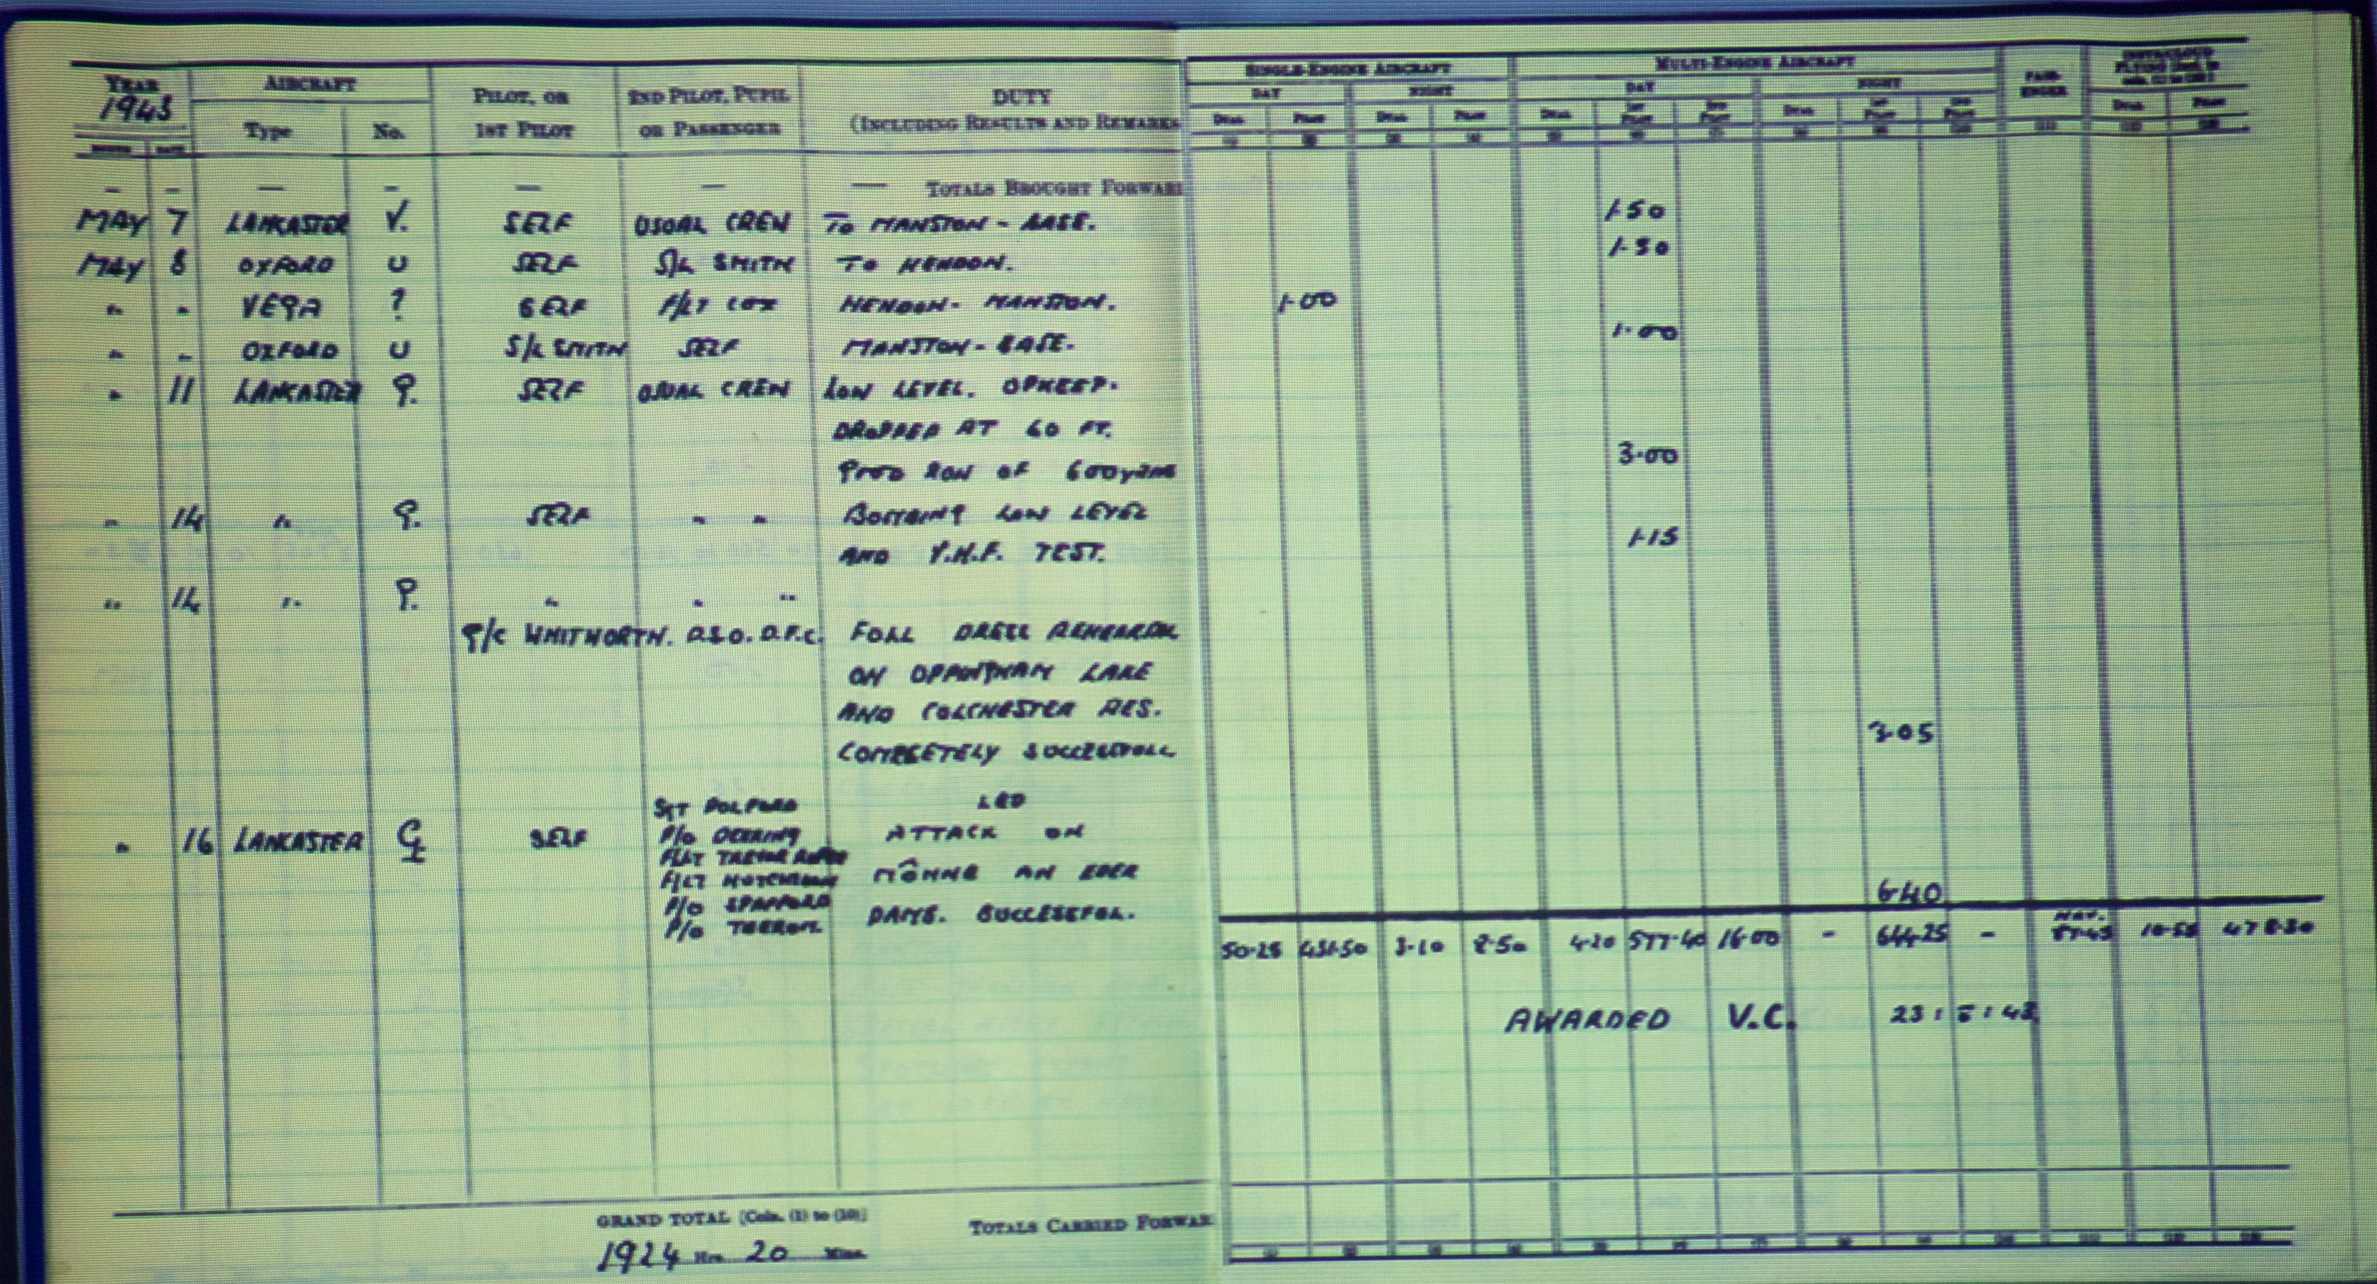 YEAR AIRCRAFT PILOT, OR 2ND PILOT, PUPIL DUTY SINGLE-ENGINE AIRCRAFT MULTI-ENGINE AIRCRAFT PASS-
1943 Type No. 1ST PILOT OR PASSENGER (INCLUDING RESULTS AND REMARKS DAY NIGHT DAY NIGHT ENGER
DUAL PILOT DUAL PILOT DUAL 1ST PILOT 2ND PILOT DUAL 1ST PILOT 2ND PILOT DUAL PILOT
— — — — — — — TOTALS BROUGHT FORWARD
MAY 7 LANCASTER V. SELF USUAL CREW TO MANSTON - BASE. 1-50
MAY 8 OXFORD U SELF S/L SMITH TO HENDON. 1-30
" " VEGA ? SELF F/LT COX HENDON - MANSTON. 1-00
" " OXFORD U S/L SMITH SELF MANSTON - BASE. 1-00
" 11 LANCASTER G. SELF USUAL CREW LOW LEVEL. UPKEEP.
DROPPED AT 60 FT.
GOOD RUN OF 600 yds 3-00
" 14 " G. SELF " " BOMBING LOW LEVEL
AND V.H.F. TEST. 1-15
" 14 " G. " " "
G/C WHITWORTH. D.S.O. D.F.C. FULL DRESS REHEARSAL
ON UPPINGHAM LAKE
AND COLCHESTER RES.
COMPLETELY SUCCESSFULL 3-05
SGT PULFORD LED
" 16 LANCASTER G SELF P/O DEERING ATTACK ON
F/LT TREVOR ROPER
F/LT HUTCHISON MÖHNE AN EDER
P/O SPAFFORD
P/O TAERUM DAMS. SUCCESSFUL. 6-40
50-25 451-50 3-10 8-50 4-20 577-40 16-00 - 644-25 - 10-55 478-30
AWARDED V.C. 23 : 5 : 43
GRAND TOTAL [Cols. (1) to (10)] TOTALS CARRIED FORWAR
1924 Hrs. 20 Mins.